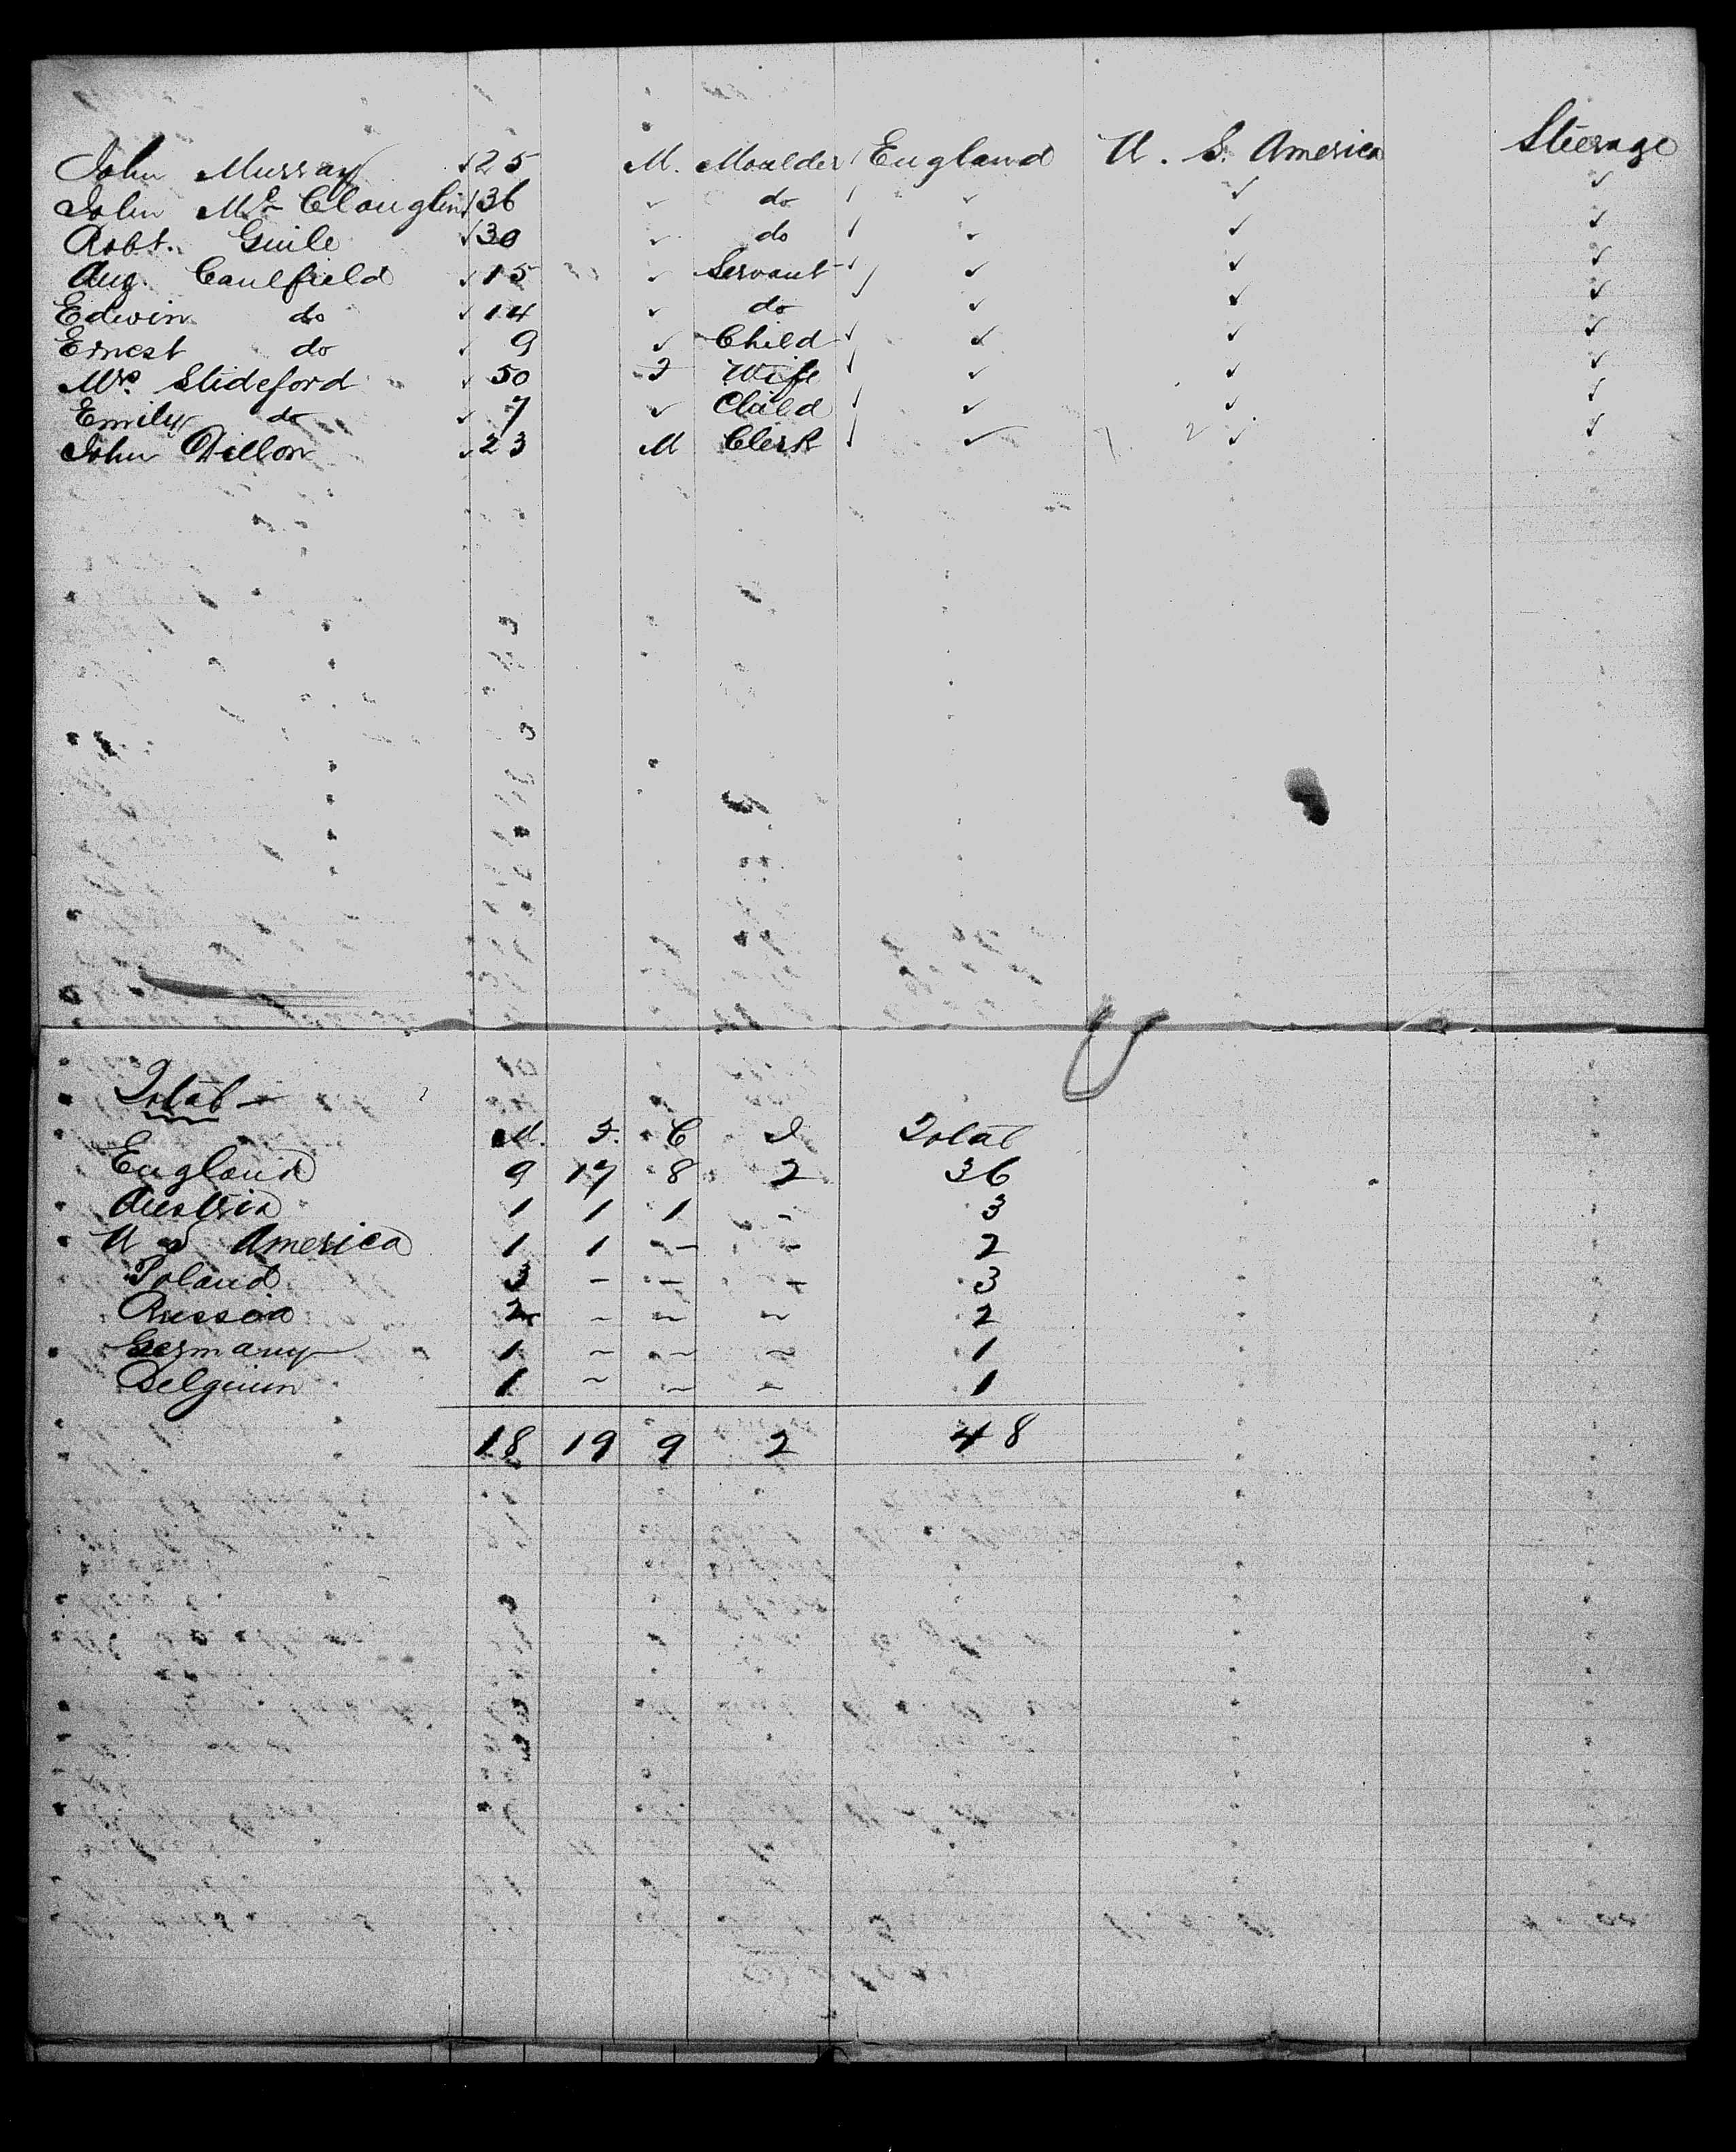 John Murray 25 M. Moulder England U. S. America Steerage
John Mc Clouglin 36 ✓ do ✓ ✓ ✓
Robt. Guile 30 ✓ do ✓ ✓ ✓
Aug. Caulfield 15 ✓ Servant ✓ ✓ ✓
Edwin do 14 ✓ do ✓ ✓ ✓
Ernest do 9 ✓ Child ✓ ✓ ✓
Mrs. Slideford 50 F Wife ✓ ✓ ✓
Emily do 7 ✓ Child ✓ ✓ ✓
John Dillon 23 M Clerk ✓ ✓ ✓
Total
M. F. C I Total
England 9 17 8 2 36
Austria 1 1 1 - 3
U S America 1 1 - - 2
Poland 3 - - - 3
Russia 2 - - - 2
Germany 1 - - - 1
Belgium 1 - - - 1
18 19 9 2 48